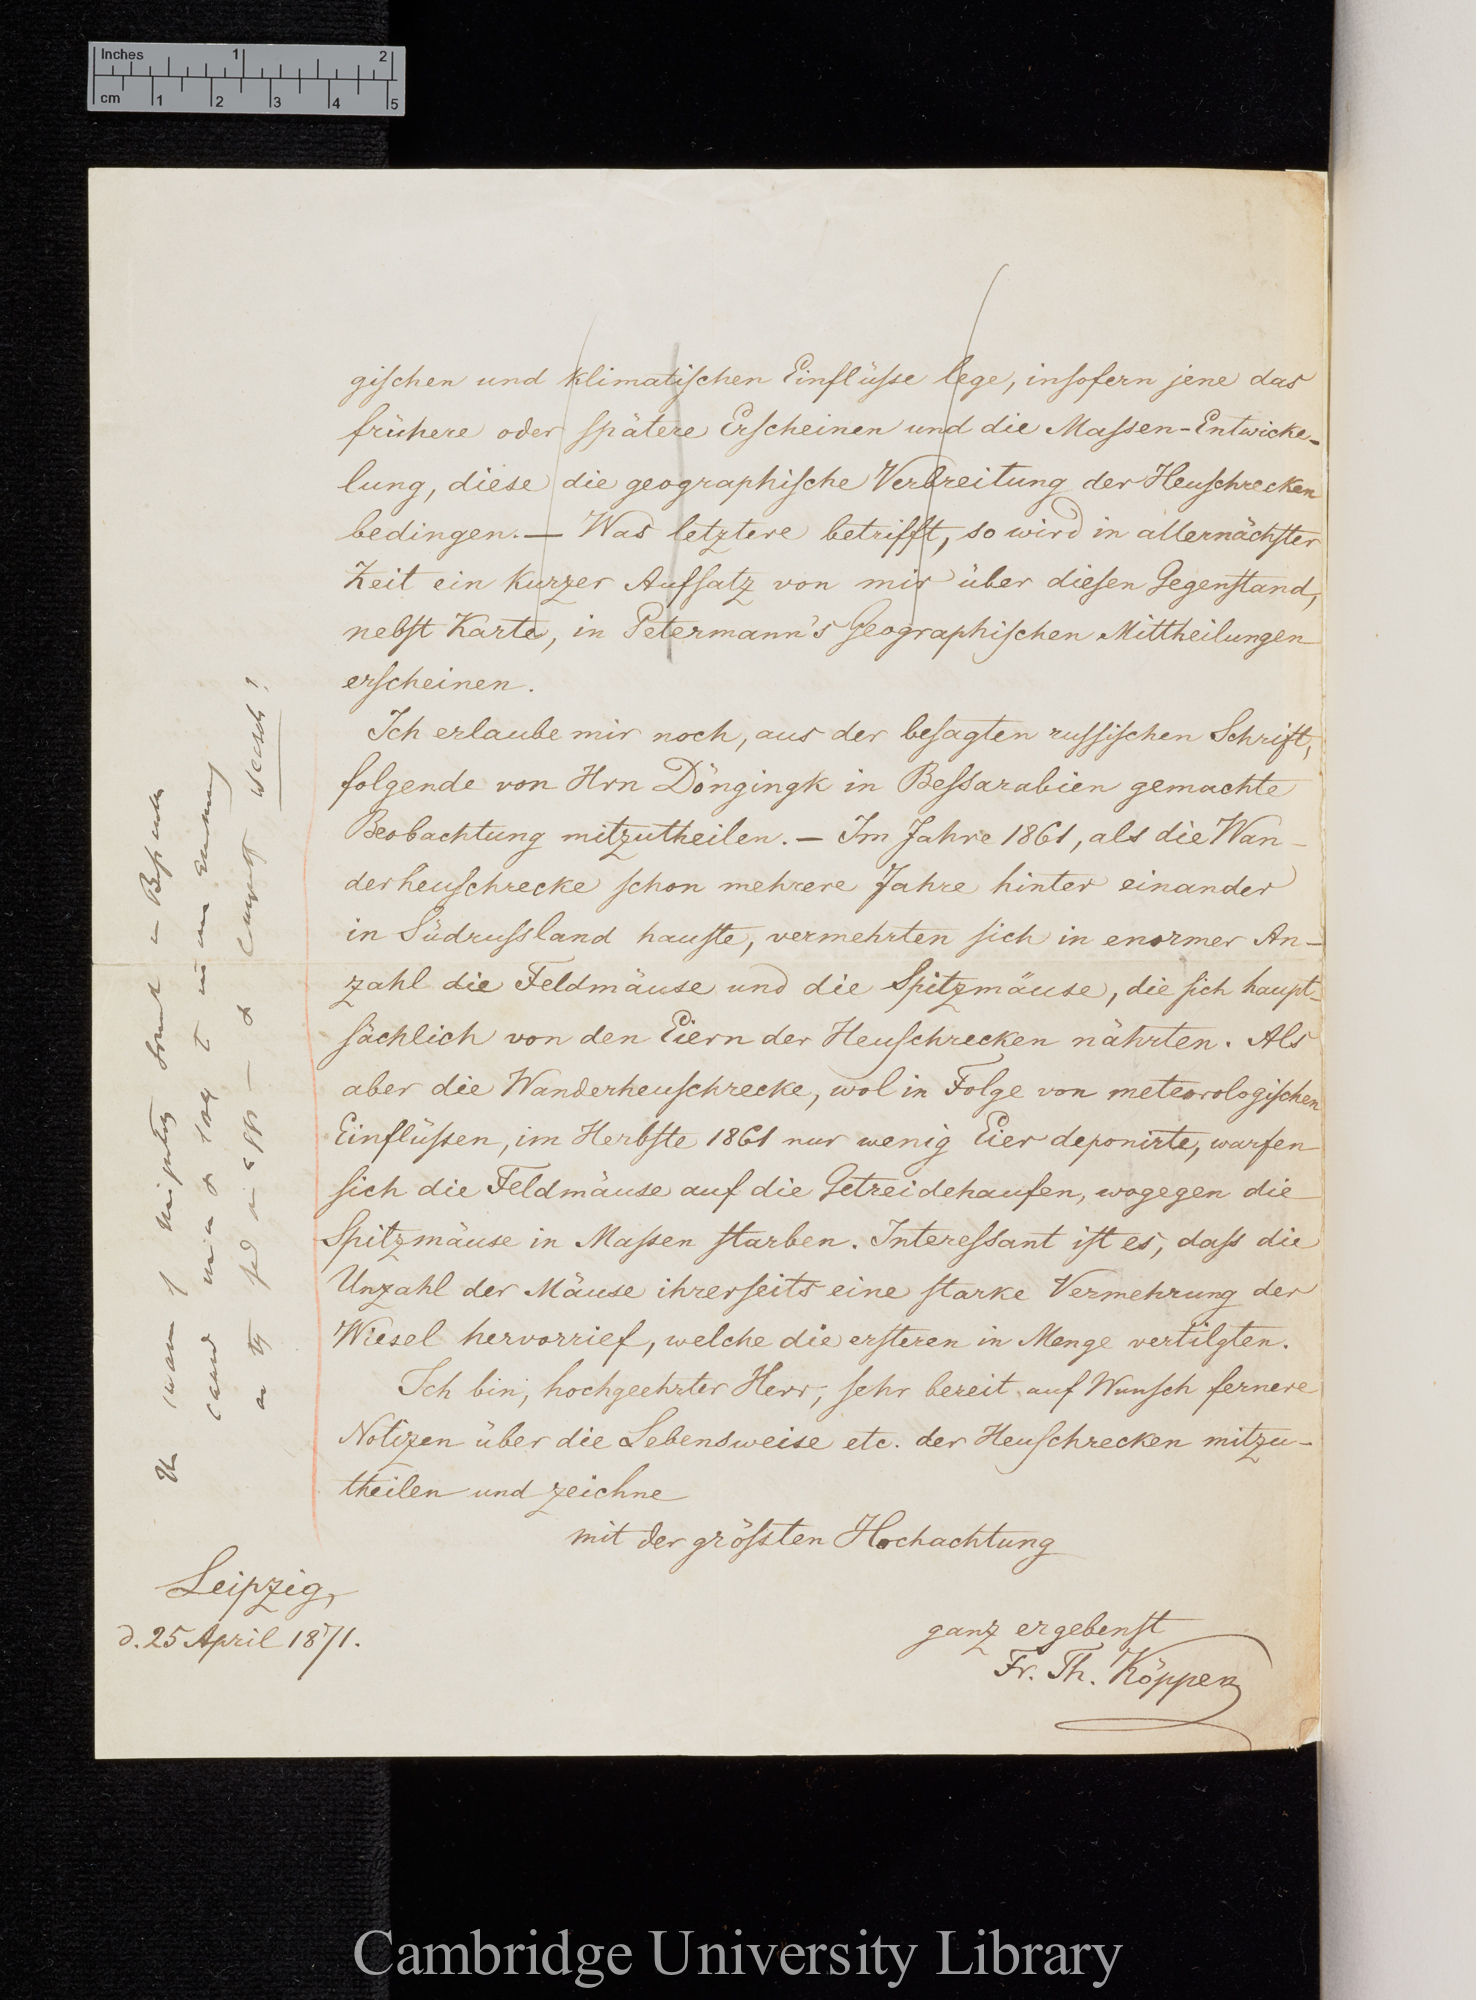 Inches 1 2
cm 1 2 3 4 5
gischen und klimatischen Einflüsse lege, insofern jene das
frühere oder spätere Erscheinen und die Massen-Entwicke-
lung, diese die geographische Verbreitung der Heuschrecken
bedingen. — Was letztere betrifft, so wird in allernächster
Zeit ein kurzer Aufsatz von mir über diesen Gegenstand,
nebst Karte, in Petermann's Geographischen Mittheilungen
erscheinen.
Ich erlaube mir noch, aus der besagten russischen Schrift,
folgende von Hrn Döngingk in Bessarabien gemachte
Beobachtung mitzutheilen. — Im Jahre 1861, als die Wan-
derheuschrecke schon mehrere Jahre hinter einander
in Südrussland hauste, vermehrten sich in enormer An-
zahl die Feldmäuse und die Spitzmäuse, die sich haupt-
sächlich von den Eiern der Heuschrecken nährten. Als
aber die Wanderheuschrecke, wol in Folge von meteorologischen
Einflüssen, im Herbste 1861 nur wenig Eier deponirte, warfen
sich die Feldmäuse auf die Getreidehaufen, wogegen die
Spitzmäuse in Massen starben. Interessant ist es, dass die
Unzahl der Mäuse ihrerseits eine starke Vermehrung der
Wiesel hervorrief, welche die ersteren in Menge vertilgten.
Ich bin, hochgeehrter Herr, sehr bereit auf Wunsch fernere
Notizen über die Lebensweise etc. der Heuschrecken mitzu-
theilen und zeichne
mit der grössten Hochachtung
Leipzig,
d. 25 April 1871.
ganz ergebenst
Fr. Th. Köppen
Cambridge University Library